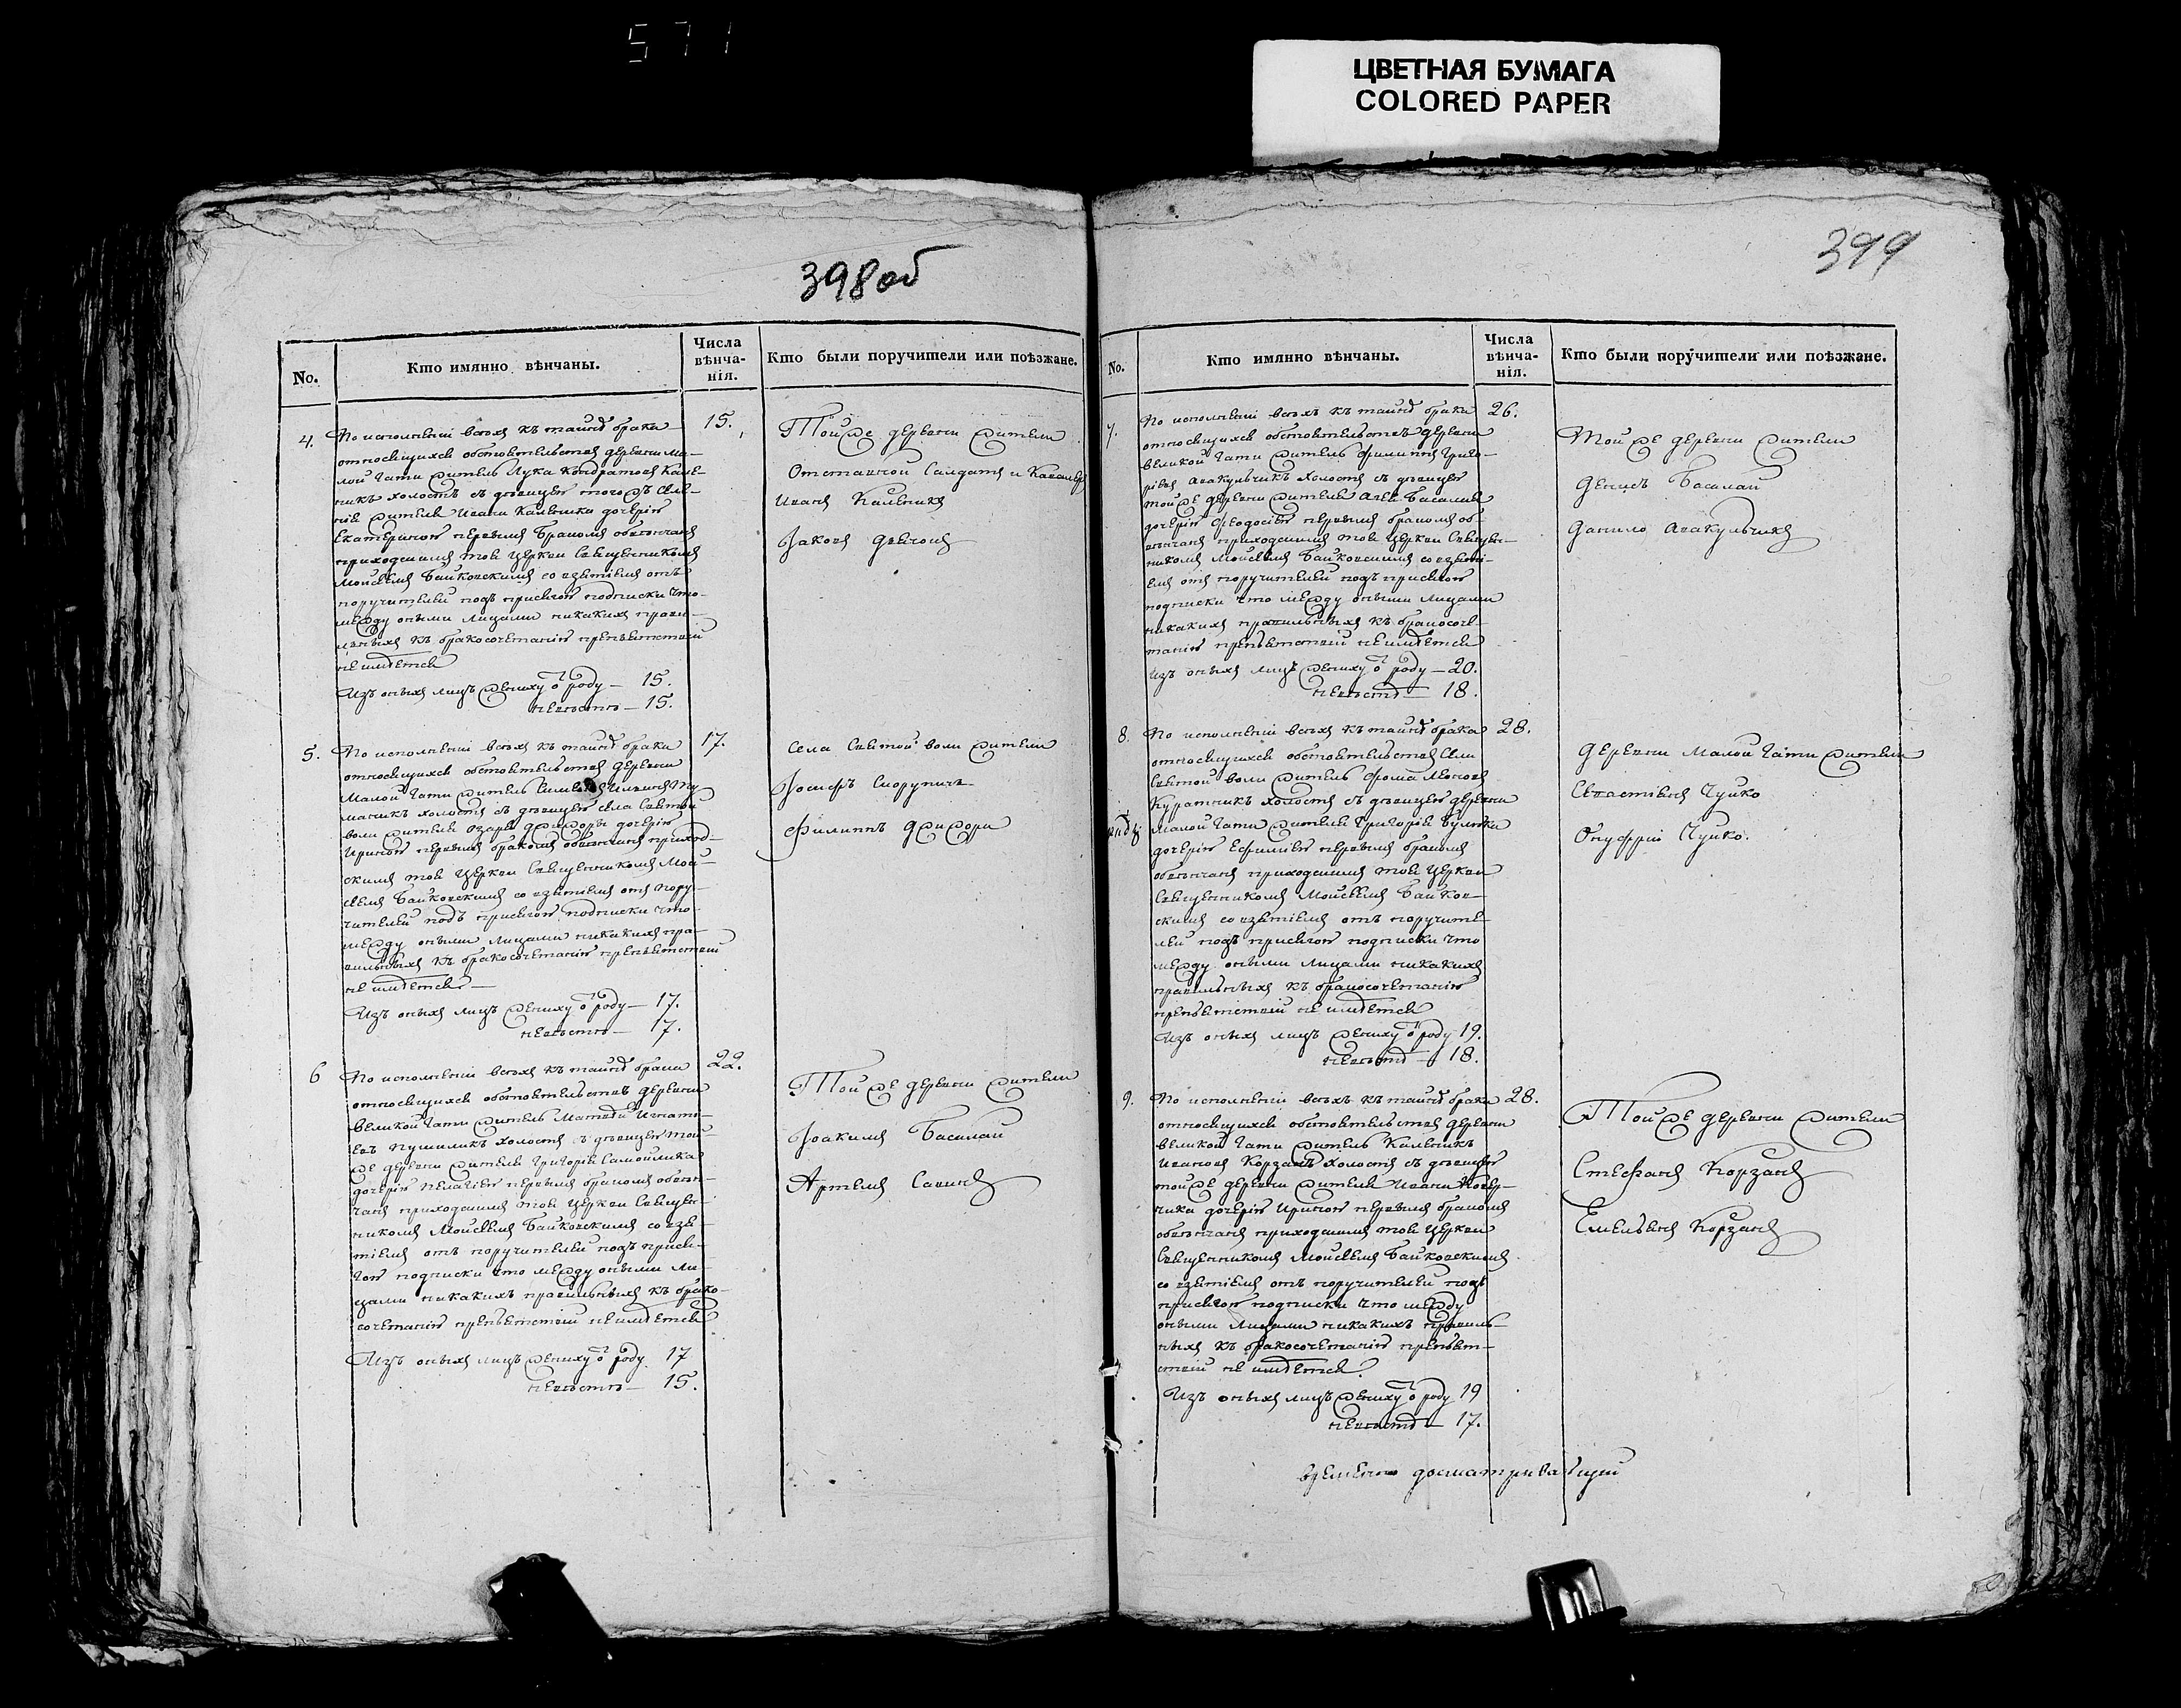 571
ЦВЕТНАЯ БУМАГА
COLORED PAPER
398об
No.
Кто имянно вѣнчаны.
Числа вѣнча-нія.
Кто были поручители или поѣзжане.
4.
По исполненіи всѣхъ къ тайнѣ брака
относящихся обстоятельствъ деревни Ма-
лой Гати житель Лука Кондратовъ Кале-
никъ холостъ съ дѣвицею того жъ селе-
нія жителя Ивана Каленика дочерію
Екатериною первымъ бракомъ обвѣнчанъ
приходскимъ той церкви священникомъ
Мойсеемъ Байковскимъ со взятіемъ отъ
поручителей подъ присягою подписки что
между оными лицами никакихъ прави-
льныхъ къ бракосочетанію препятствій
не имѣется
Изъ оныхъ лицъ жениху ѿ роду — 15.
невѣстѣ — 15.
15.
Той же деревни жители
Отставной Салдатъ и Кавалеръ
Иванъ Каленикъ
Іаковъ
5.
По исполненіи всѣхъ къ тайнѣ брака
относящихся обстоятельствъ деревни
Малой Гати житель
холостъ съ дѣвицею села Святой
воли жителя дочерію
Ириною первымъ бракомъ обвѣнчанъ приход-
скимъ той церкви священникомъ Мой-
сеемъ Байковскимъ со взятіемъ отъ пору-
чителей подъ присягою подписки что
между оными лицами никакихъ пра-
вильныхъ къ бракосочетанію препятствій
не имѣется. —
Изъ оныхъ лицъ жениху ѿ роду — 17.
невѣстѣ — 17.
17.
Села Святой воли жители
Іосифъ Скорупичъ
Филиппъ
6
По исполненіи всѣхъ къ тайнѣ брака
относящихся обстоятельствъ деревни
Великой Гати житель Матвѣй Игнать-
евъ Пушиликъ холостъ съ дѣвицею той
же деревни жителя Григорія Самойлика
дочерію Пелагіею первымъ бракомъ обвѣн-
чанъ приходскимъ той церкви священ-
никомъ Мойсеемъ Байковскимъ со взя-
тіемъ отъ поручителей подъ прися-
гою подписки что между оными ли-
цами никакихъ правильныхъ къ брако-
сочетанію препятствій не имѣется
Изъ оныхъ лицъ жениху ѿ роду 17
невѣстѣ — 15.
22.
Той же деревни жители
Іоакимъ Басалай
Артемъ Савинъ
399
No.
Кто имянно вѣнчаны.
Числа вѣнча-нія.
Кто были поручители или поѣзжане.
7.
По исполненіи всѣхъ къ тайнѣ брака
относящихся обстоятельствъ деревни
Великой Гати житель Филиппъ Григо-
рьевъ Авакульчикъ холостъ съ дѣвицею
той же деревни жителя Басалая
дочерію Феодосіею первымъ бракомъ об-
вѣнчанъ приходскимъ той церкви священ-
никомъ Мойсеемъ Байковскимъ со взяті-
емъ отъ поручителей подъ присягою
подписки что между оными лицами
никакихъ правильныхъ къ бракосоче-
танію препятствій не имѣется
Изъ оныхъ лицъ жениху ѿ роду — 20.
невѣстѣ — 18.
26.
Той же деревни жители
Денисъ Басалай
Данило Авакульчикъ
8.
По исполненіи всѣхъ къ тайнѣ брака
относящихся обстоятельствъ Села
Святой воли житель Фома Леоновъ
Куратникъ холостъ съ дѣвицею деревни
Малой Гати жителя Григорія
дочерію Ефиміею первымъ бракомъ
обвѣнчанъ приходскимъ той церкви
священникомъ Мойсеемъ Байков-
скимъ со взятіемъ отъ поручите-
лей подъ присягою подписки что
между оными лицами никакихъ
правильныхъ къ бракосочетанію
препятствій не имѣется
Изъ оныхъ лицъ жениху ѿ роду 19.
невѣстѣ — 18.
28.
Деревни Малой Гати жители
Севастіянъ Чуйко
Онуфрій Чуйко.
9.
По исполненіи всѣхъ къ тайнѣ брака
относящихся обстоятельствъ деревни
Великой Гати житель Каленикъ
Ивановъ Корзанъ холостъ съ дѣвицею
той же деревни жителя Ивана
дочерію Ириною первымъ бракомъ
обвѣнчанъ приходскимъ той церкви
священникомъ Мойсеемъ Байковскимъ
со взятіемъ отъ поручителей подъ
присягою подписки что между
оными лицами никакихъ правиль-
ныхъ къ бракосочетанію препят-
ствій не имѣется.
Изъ оныхъ лицъ жениху ѿ роду 19
невѣстѣ — 17.
28.
Той же деревни жители
Стефанъ Корзанъ
Емельянъ Корзанъ